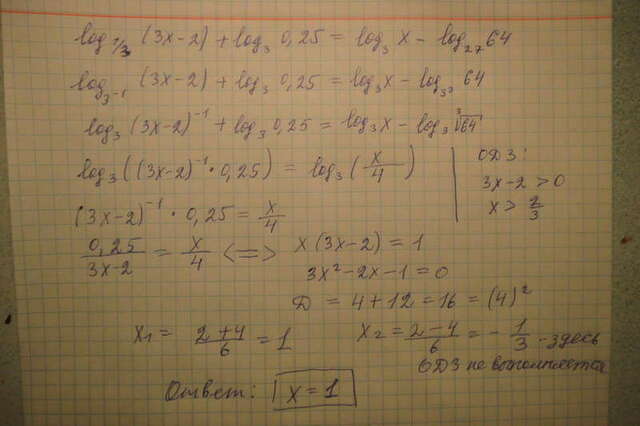 log_{1/3} (3x-2) + log_3 0,25 = log_3 x - log_{27} 64
log_{3^{-1}} (3x-2) + log_3 0,25 = log_3 x - log_{3^3} 64
log_3 (3x-2)^{-1} + log_3 0,25 = log_3 x - log_3 ∛64
log_3 ((3x-2)^{-1} · 0,25) = log_3 (x/4)
ОДЗ:
3x-2 > 0
x > 2/3
(3x-2)^{-1} · 0,25 = x/4
0,25/(3x-2) = x/4 <=> x(3x-2) = 1
3x²-2x-1=0
D = 4+12=16=(4)²
x₁ = (2+4)/6 = 1
x₂ = (2-4)/6 = -1/3 - здесь
ОДЗ не выполняется
Ответ: x=1